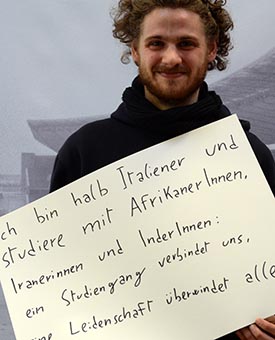 ch bin halb Italiener und
studiere mit AfrikanerInnen,
Iranerinnen und InderInnen:
ein Studiengang verbindet uns,
ine Leidenschaft überwindet alle